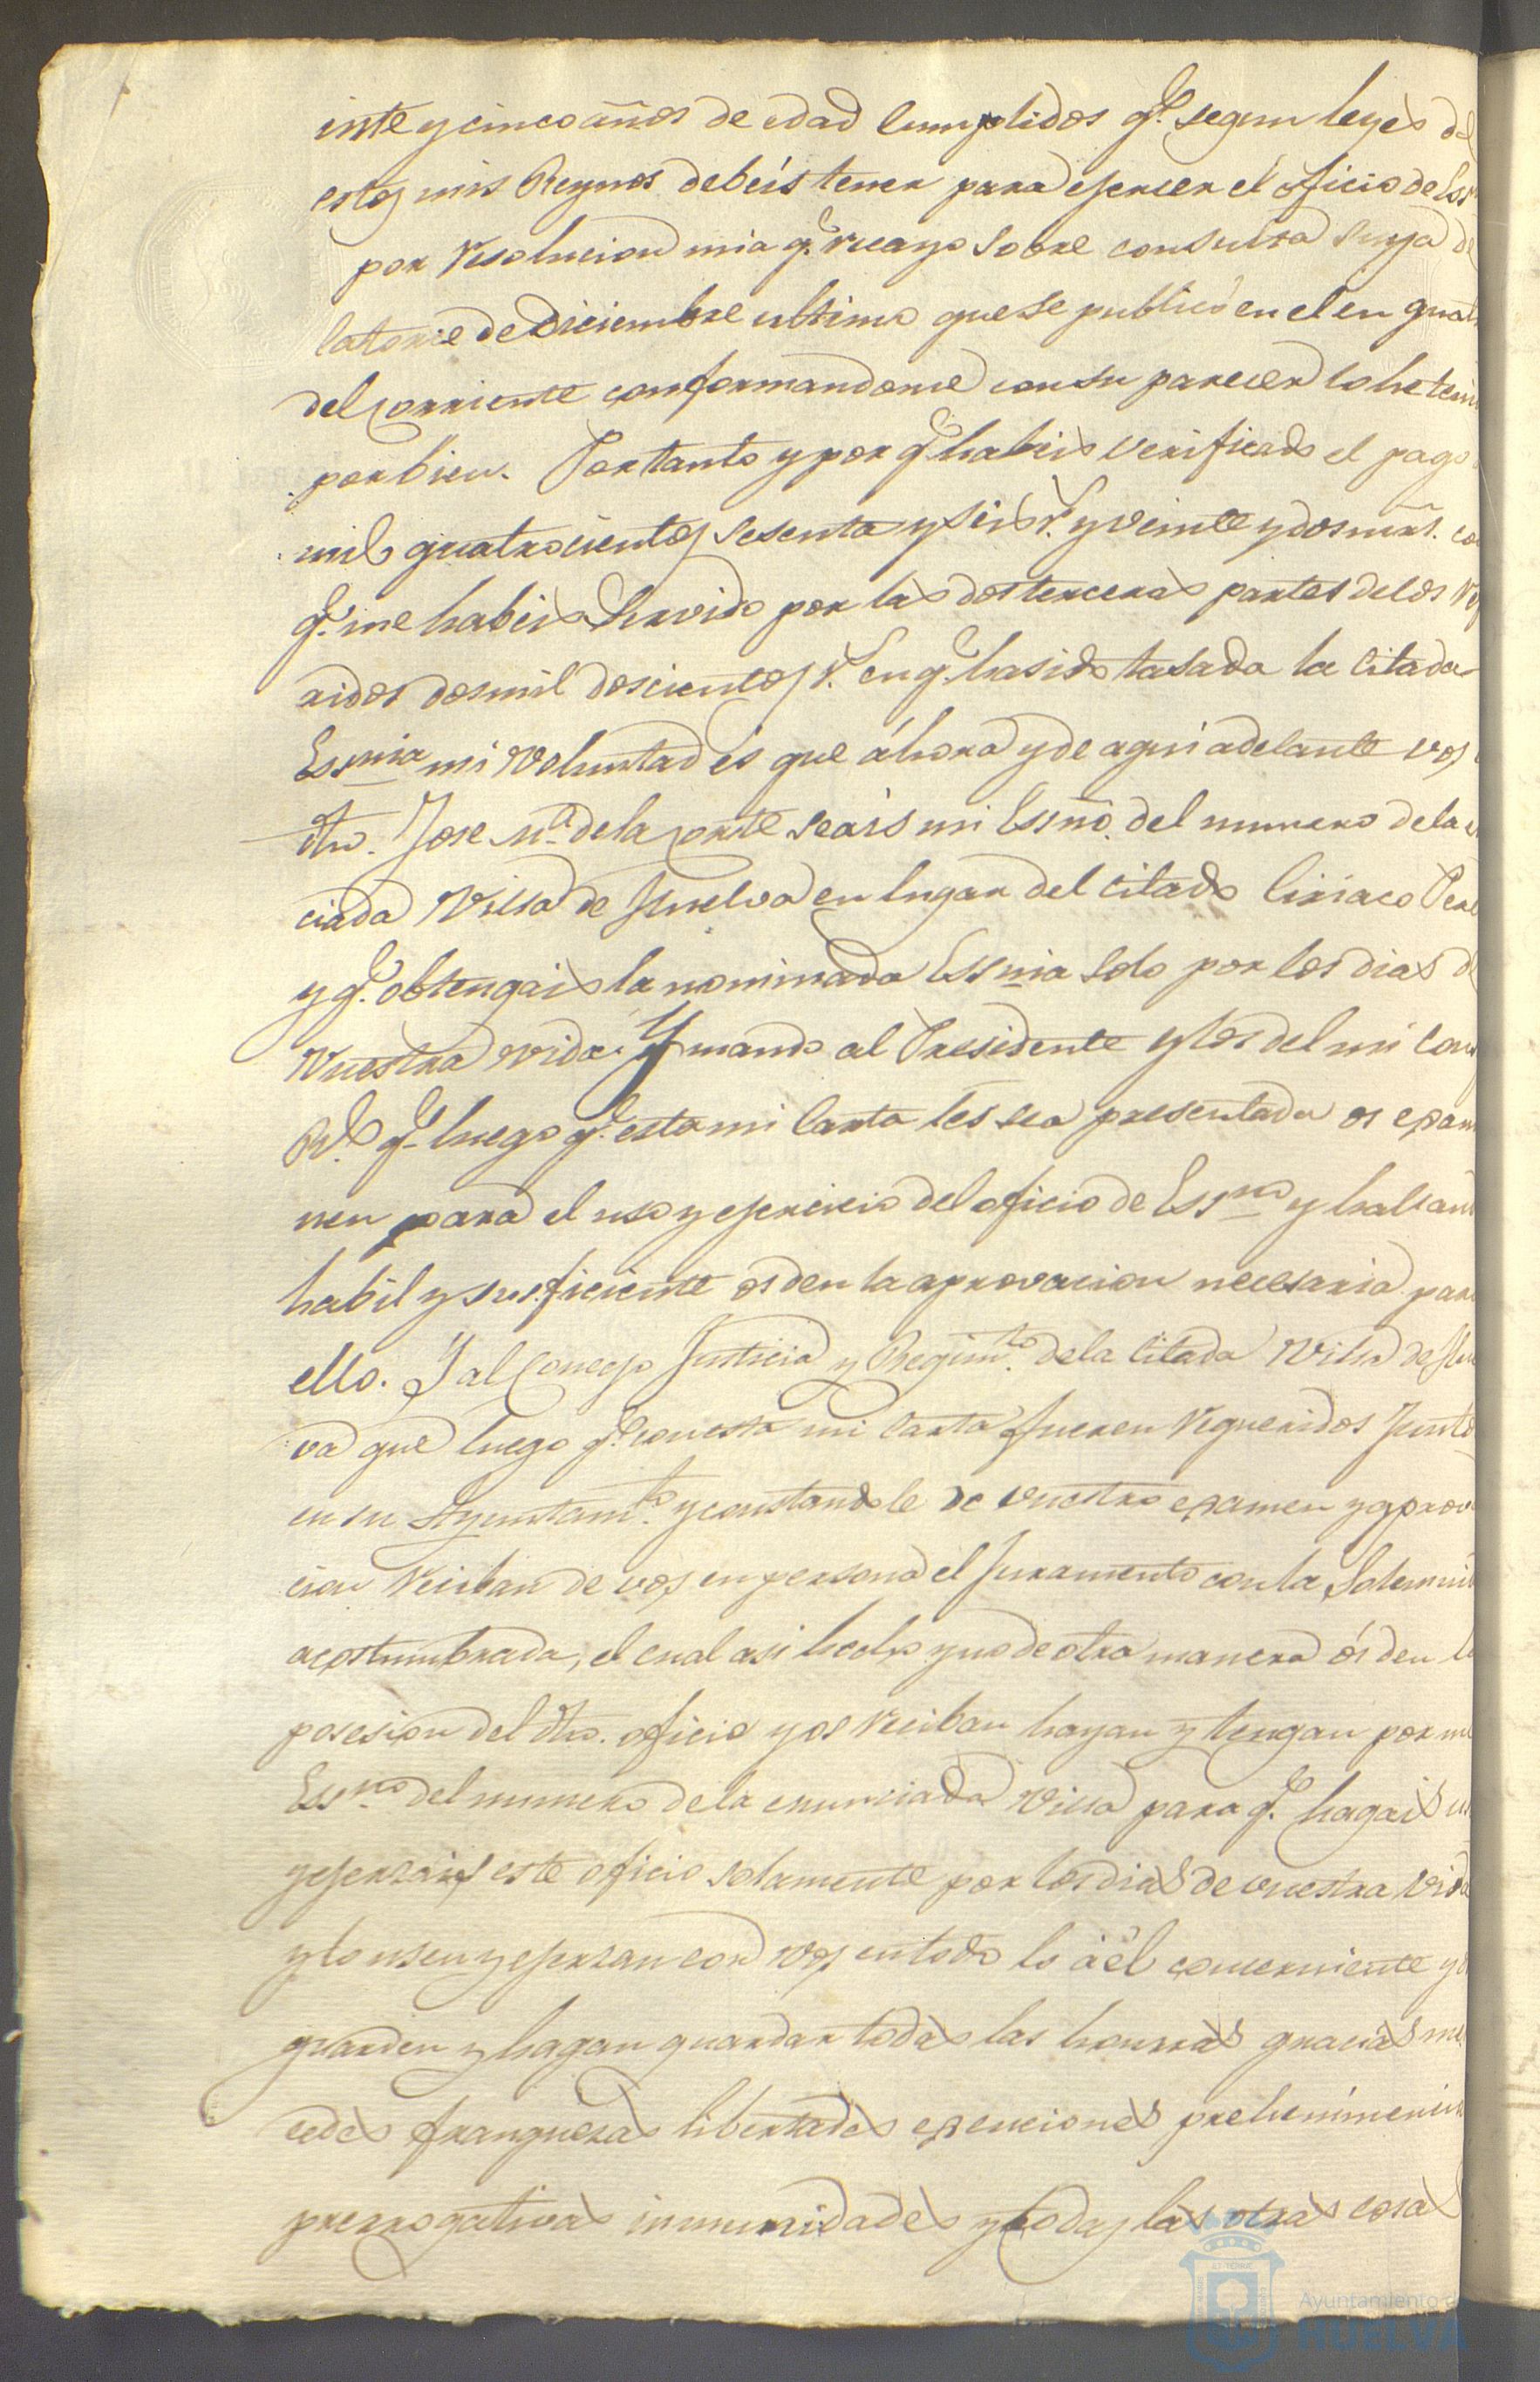 inte y cinco años de edad cumplidos q.e segun leyes de
estos mis Reynos debeis tener para ejercer el oficio de Ess.
por resolucion mia q.e recayo sobre consulta suya de
catorce de Diciembre ultimo que se publicó en el en quat
del corriente conformandome con su parecer lo he teni
por bien. Por tanto y por q.e habeis verificado el pago
mil quatrocientos sesenta y seis r.s y veinte y dos mrs. co
q.e me habeis servido por las dos terceras partes de los re
ridos dos mil doscientos r.s en q.e ha sido tasada la citada
Essnia mi voluntad és que áhora y de aqui adelante vos
dho. Jose M.a de la Corte seais mi Essno. del numero de la
ciada Villa de Huelva en lugar del citado Ciriaco Pere
y q.e obtengais la nominada Essnia solo por los dias de
vuestra vida. Y mando al Presidente y los del mi Cons
R.l q.e luego q.e esta mi Carta les sea presentada os exam
nen para el uso y ejercicio del oficio de Ess.no y halland
habil y suficiente os den la aprovacion necesaria para
ello. Y al Concejo Justicia y Regim.to de la citada Villa de Hu
va que luego q.e con esta mi Carta fueren requeridos Junto
en su Ayuntam.to y constandole de vuestro examen y aprov
cion reciban de vos en persona el Juramento con la Solemnid
acostumbrada, el cual asi hecho y no de otra manera ós den l
posesion del dho. oficio y os reciban hayan y tengan por mi
Ess.no del numero de la enunciada Villa para q.e hagais us
y ejerzais este oficio solamente por los dias de vuestra vida
y lo usen y ejerzan con vos en todo lo á él concerniente y
guarden y hagan guardar todas las honrras gracias mr
cedes franquezas libertades exenciones prehemimencia
prerrogativas inmunidades y todas las otras cosas
Ayuntamiento de
HUELVA